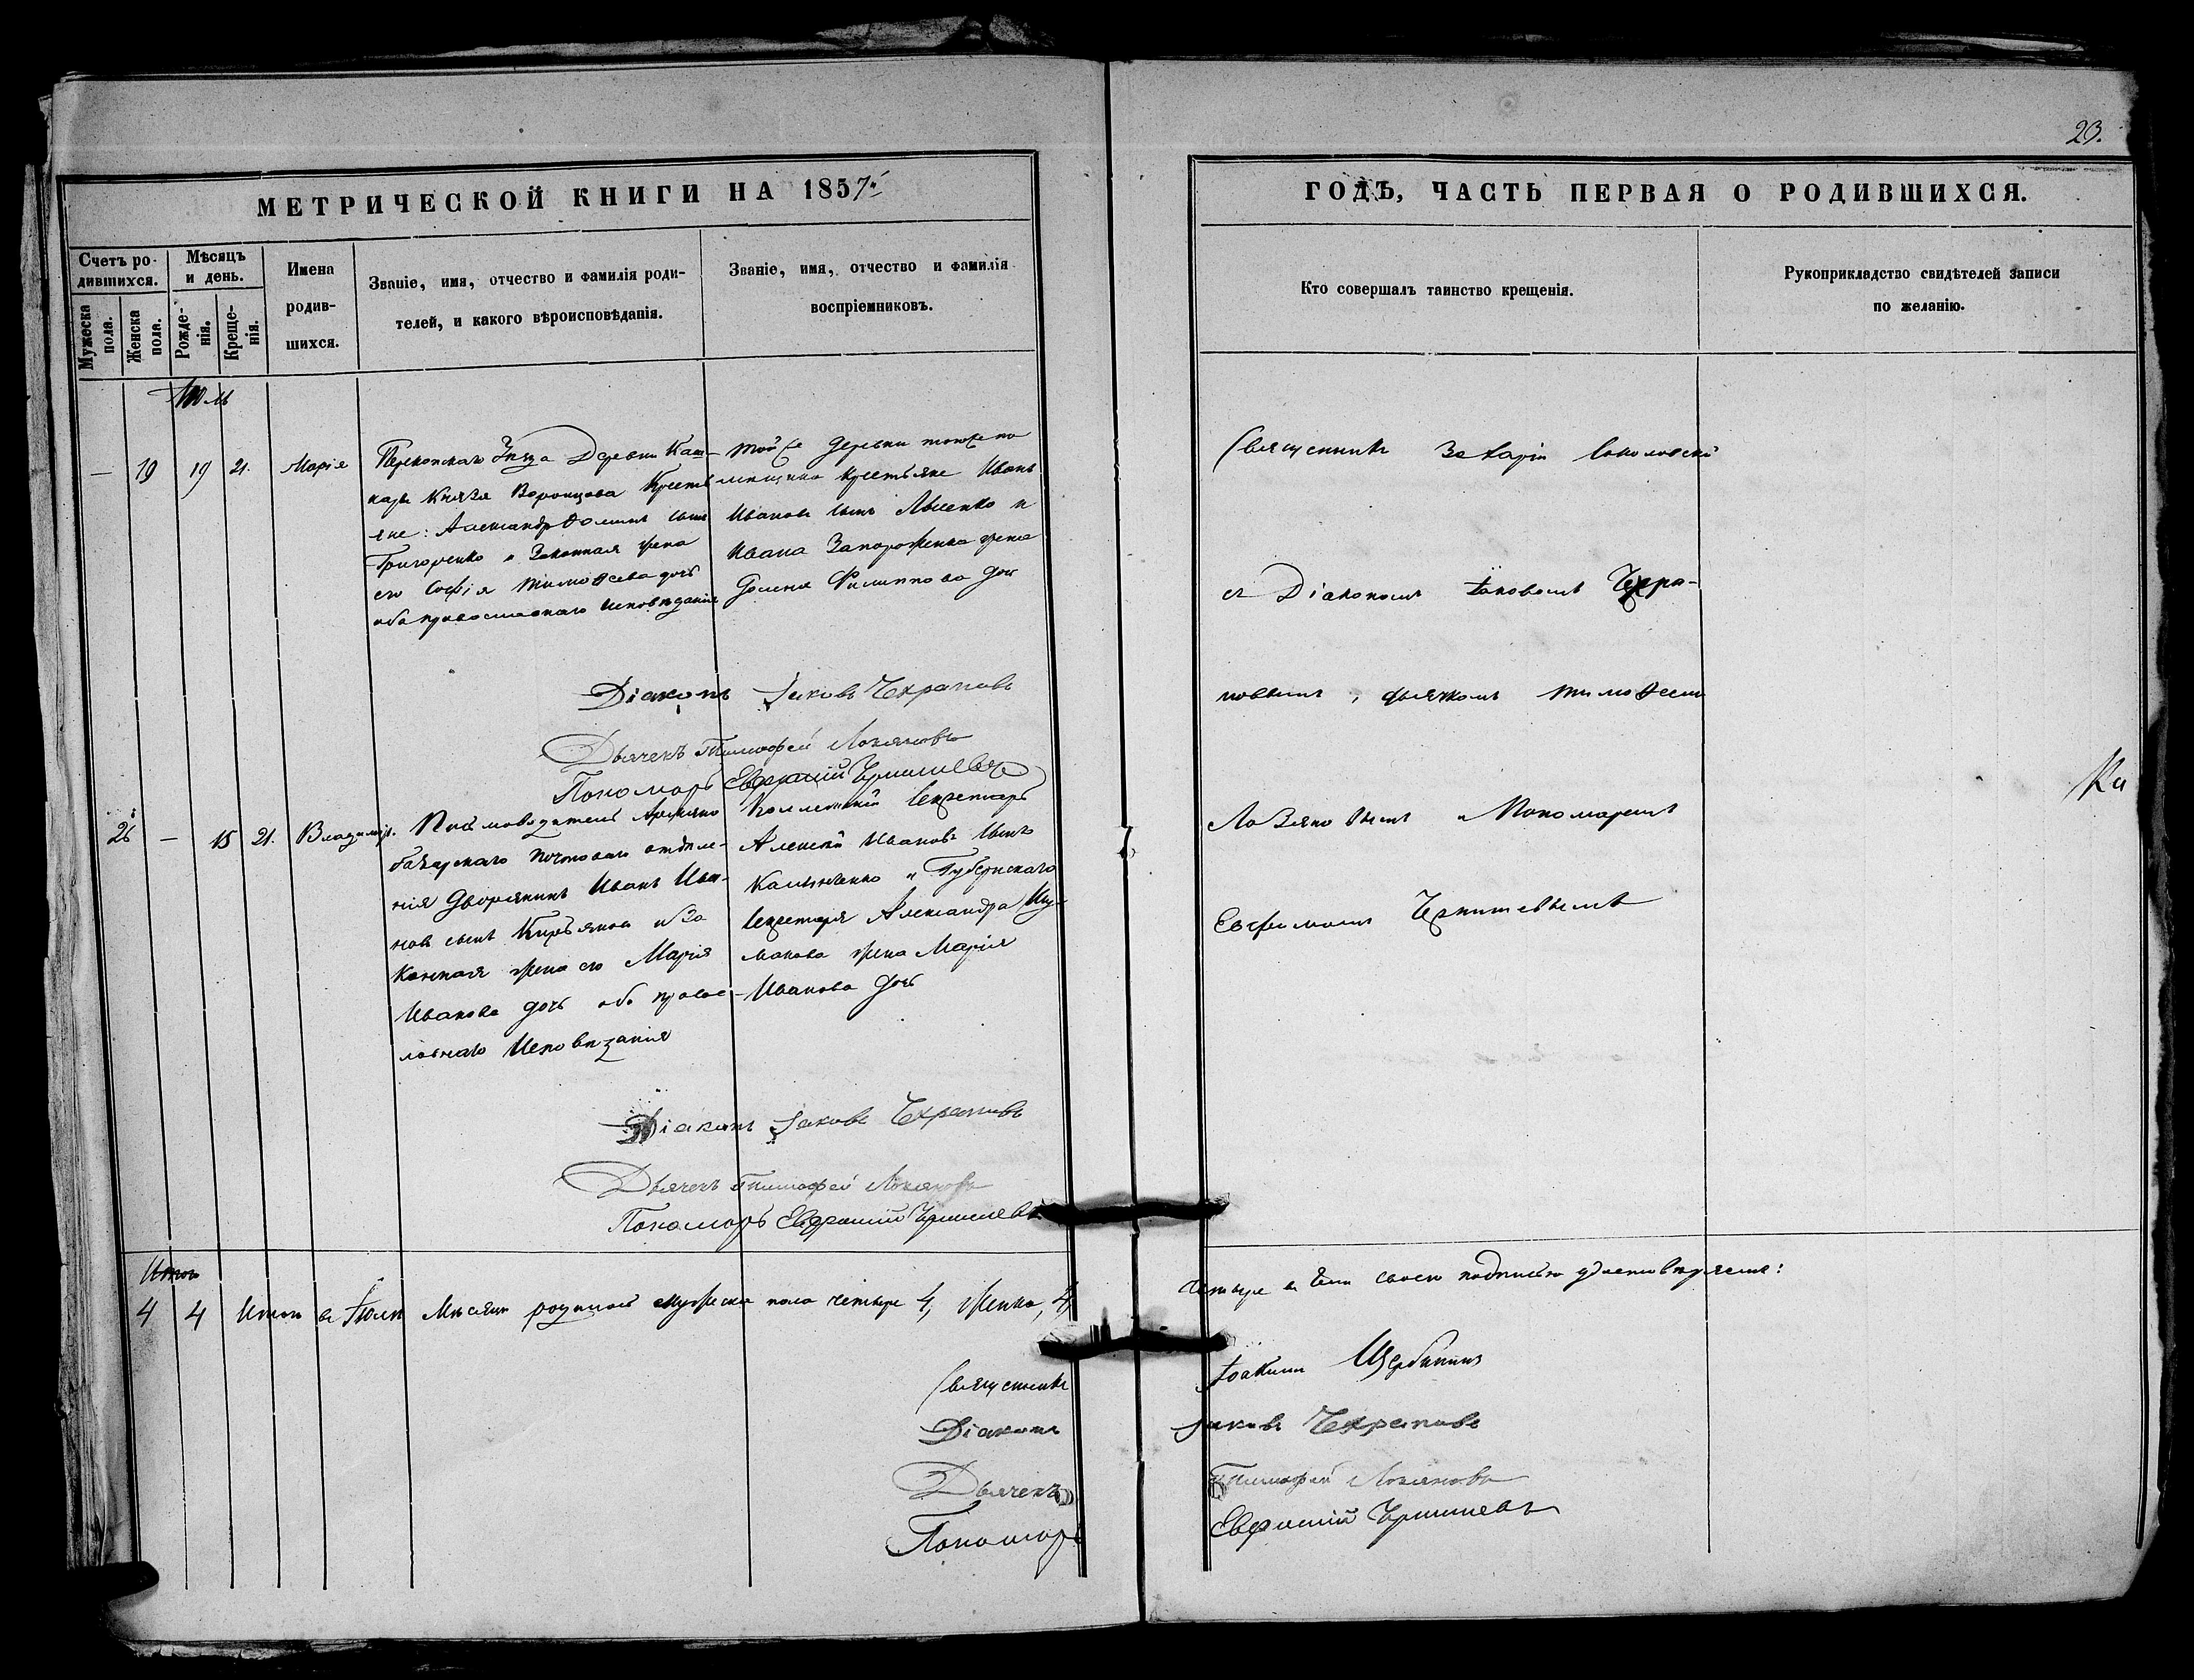 23.
МЕТРИЧЕСКОЙ КНИГИ НА 1857й
ГОДЪ, ЧАСТЬ ПЕРВАЯ О РОДИВШИХСЯ.
Счетъ ро-
дившихся.
Мужеска
пола.
Женска
пола.
Мѣсяцъ
и день.
Рожде-
нія.
Креще-
нія.
Имена
родив-
шихся.
Званіе, имя, отчество и фамилія роди-
телей, и какого вѣроисповѣданія.
Званіе, имя, отчество и фамилія
воспріемниковъ.
Кто совершалъ таинство крещенія.
Рукоприкладство свидѣтелей записи
по желанію.
Іюль
— 19 19 21. Марія
Перекопскаго Уѣзда Деревни Каш-
кары Князя Воронцова Кресть
яне: Александръ Ѳоминъ сынъ
Григоренко и Законная жена
его Софія Тимоѳеева дочь
оба православнаго исповѣданія
Той же деревни тогоже по
мещика крестьяне Иванъ
Ивановъ сынъ Лысенко и
Ивана Запороженка жена
Филиппова дочь
Священникъ Захарій Соколовскій
съ Діакономъ Іаковомъ Чехра-
новымъ, дьячкомъ Тимоѳеем
Лозяновымъ и Пономаремъ
Евфимомъ Чернишевымъ
Діаконъ Іаковъ Чехрановъ
Дьячекъ Тимофей Лозяновъ
Пономарь Евфимій Чернишевъ
26 — 15 21. Владиміръ.
Письмоводитель Армяно
базарскаго почтоваго отдѣле-
нія дворянинъ Иванъ Ива-
новъ сынъ и За
конная жена его Марія
Иванова дочь оба правос-
лавнаго Исповѣданія
Коллежскій Секретарь
Алексѣй Ивановъ сынъ
и Губернскаго
Секретаря Александра Шу-
макова жена Марія
Иванова дочь
Ки
Діаконъ Іаковъ Чехрановъ
Дьячекъ Тимофей Лозяновъ
Пономарь Евфимій Чернишевъ
Итого
4 4 Итого въ Іюлѣ Мѣсяцѣ родилось мужеска пола четыре 4, женска, 4,
четыре въ чемъ своею подписью удостовѣряемъ:
Священникъ Іоакимъ Щербининъ
Діаконъ Іаковъ Чехрановъ
Дьячекъ Тимофей Лозяновъ
Пономарь Евфимій Чернишевъ